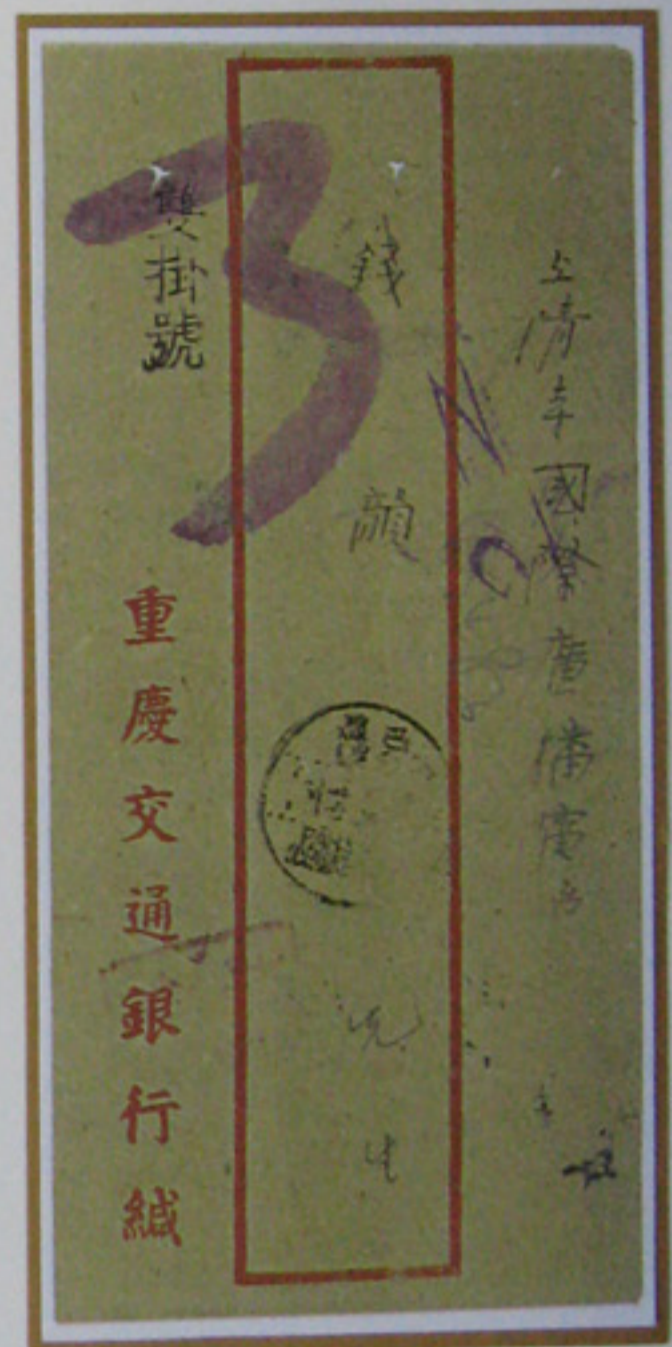 上清寺國際廣播電台
錢
顏
先生
雙掛號
3
重慶交通銀行緘